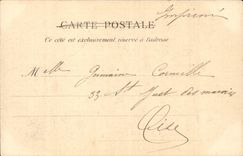 Imprimé
CARTE POSTALE
Ce côté est exclusivement réservé à l'adresse
Melle Germaine Corneille
33 St Just des marais
Oise